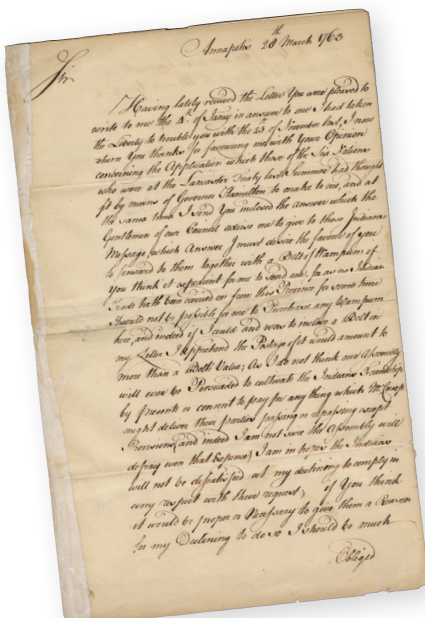 Annapolis 20th March 1763
Sir
Having lately received the Letter You were pleased to
write to me the of Janry in answer to one I had taken
the Liberty to trouble you with the 23 of December last, I now
return You thanks for favouring me with Your Opinion
concerning the Application which those of the Six Nations
who were at the Lancaster Treaty last Summer had thought
fit by means of Governor Hamilton to make to me, and at
the same time I send You inclosed the answer which the
Gentlemen of our Council advise me to give to those Indians
Message, which Answer I must desire the favour of you
to forward to them together with a Belt of Wampum if
You think it expedient for me to send one. for as no Indian
Trade hath been carried on from this Province for some time
it would not be possible for me to Purchase any Wampum
here, and indeed if I could and was to inclose a Belt in
my Letter I apprehend the Postage of it would amount to
more than a Belts Value; As I do not think our Assembly
will ever be Persuaded to cultivate the Indians Friendship
by presents or consent to pay for any thing which Mr Cresap
might deliver their parties passing or repassing except
Provisions, and indeed I am not sure the Assembly will
defray even that Expence, I am in hopes the Indians
will not be dissatisfied at my declining to comply in
every respect with their request, if You think
it would be proper or Necessary to give them a Reason
for my Declining to do so I should be much
Obliged